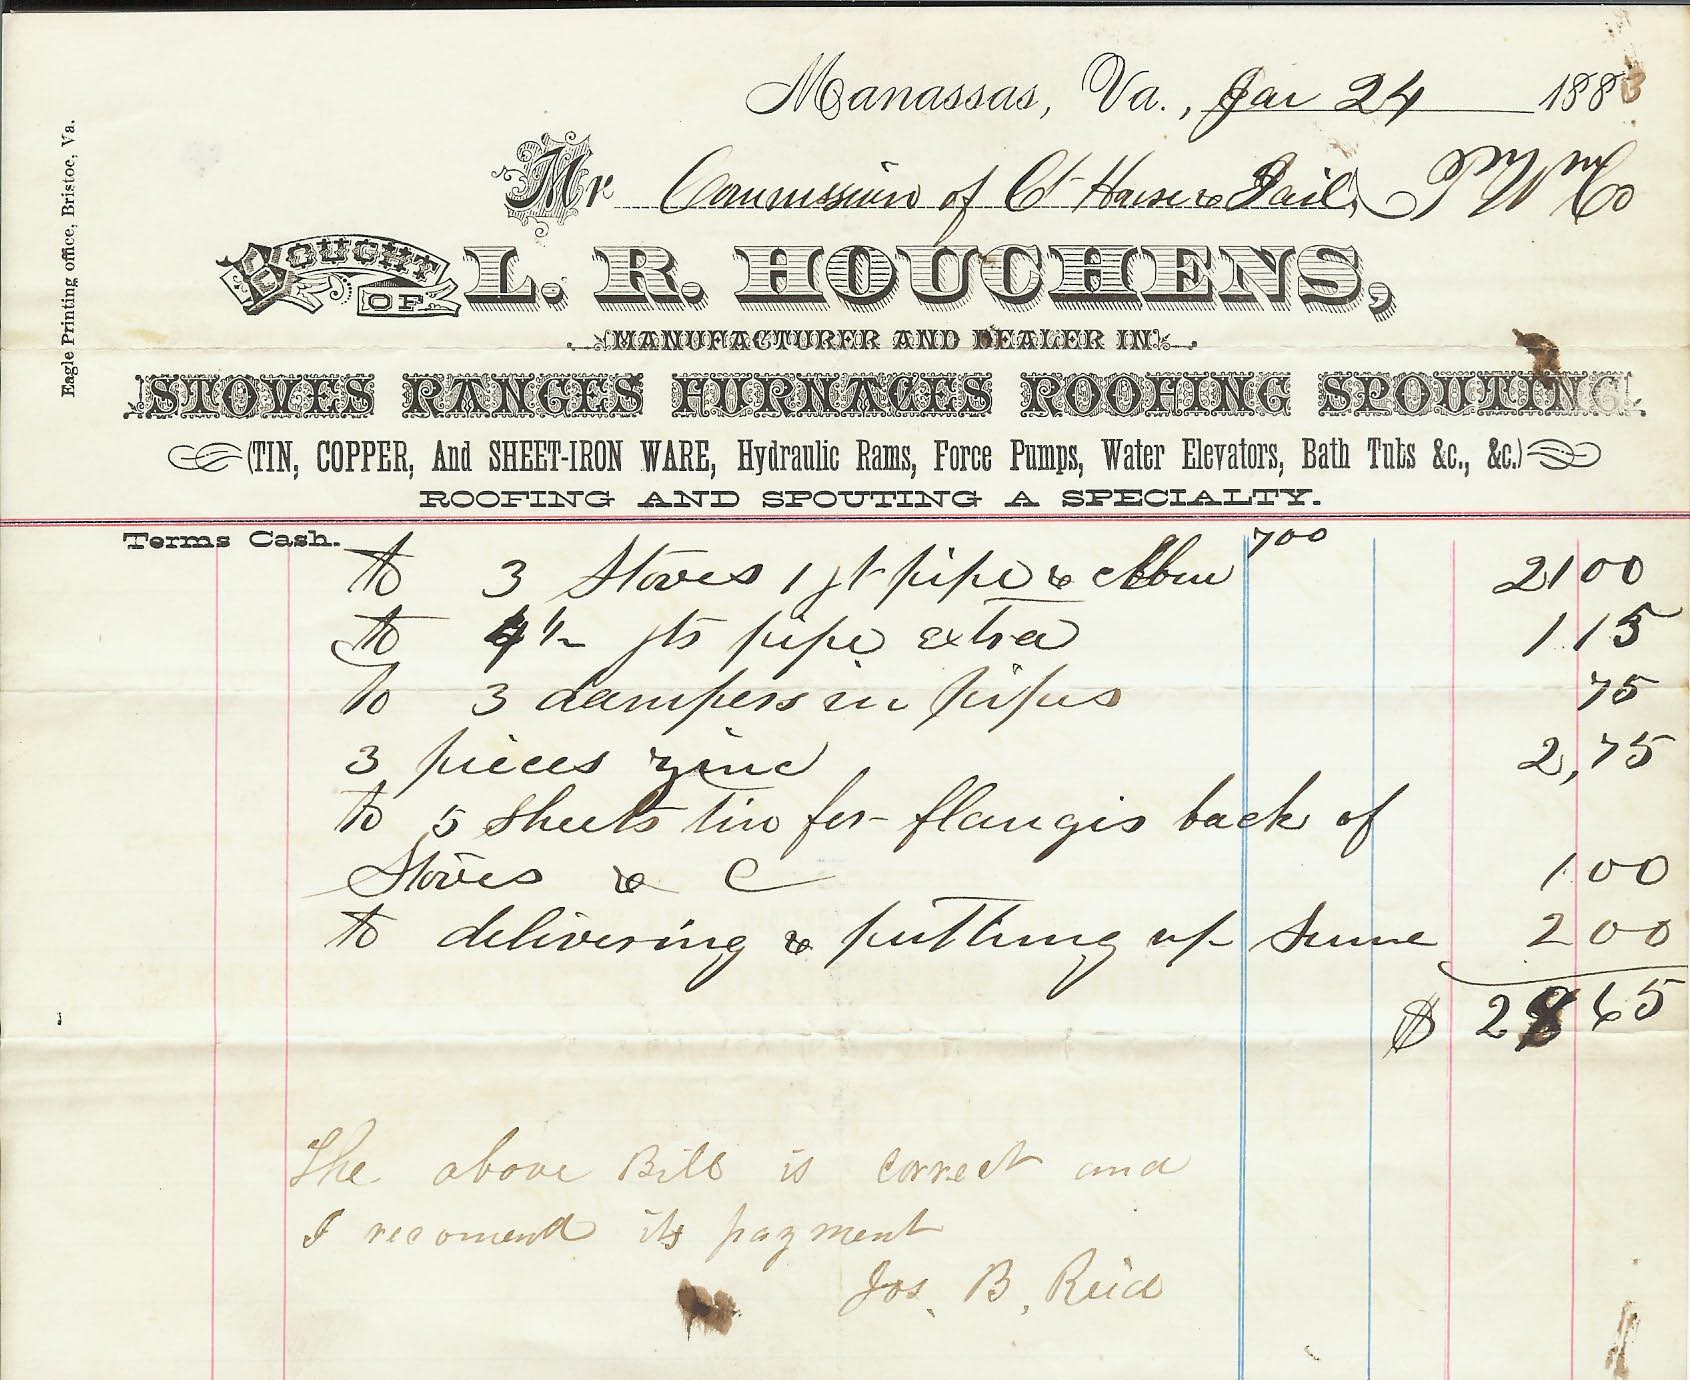 Manassas, Va., Jan 24 1883
Mr Commission of Ct House & Jail, Pr Wm Co
BOUGHT OF L. R. HOUCHENS,
MANUFACTURER AND DEALER IN
STOVES RANGES FURNACES ROOFING SPOUTING
(TIN, COPPER, And SHEET-IRON WARE, Hydraulic Rams, Force Pumps, Water Elevators, Bath Tubs &c., &c.)
ROOFING AND SPOUTING A SPECIALTY.
Eagle Printing office, Bristoe, Va.
Terms Cash.
to 3 Stoves 1 jt pipe & Elbow 700 2100
to 4 1/2 jts pipe extra 1.15
to 3 dampers in pipes 75
3 pieces zinc 2,75
to 5 sheets tin for flangis back of
Stoves & C 1.00
to delivering & putting up same 2 00
$ 28 65
The above Bill is correct and
I recomend its payment
Jos. B. Reid